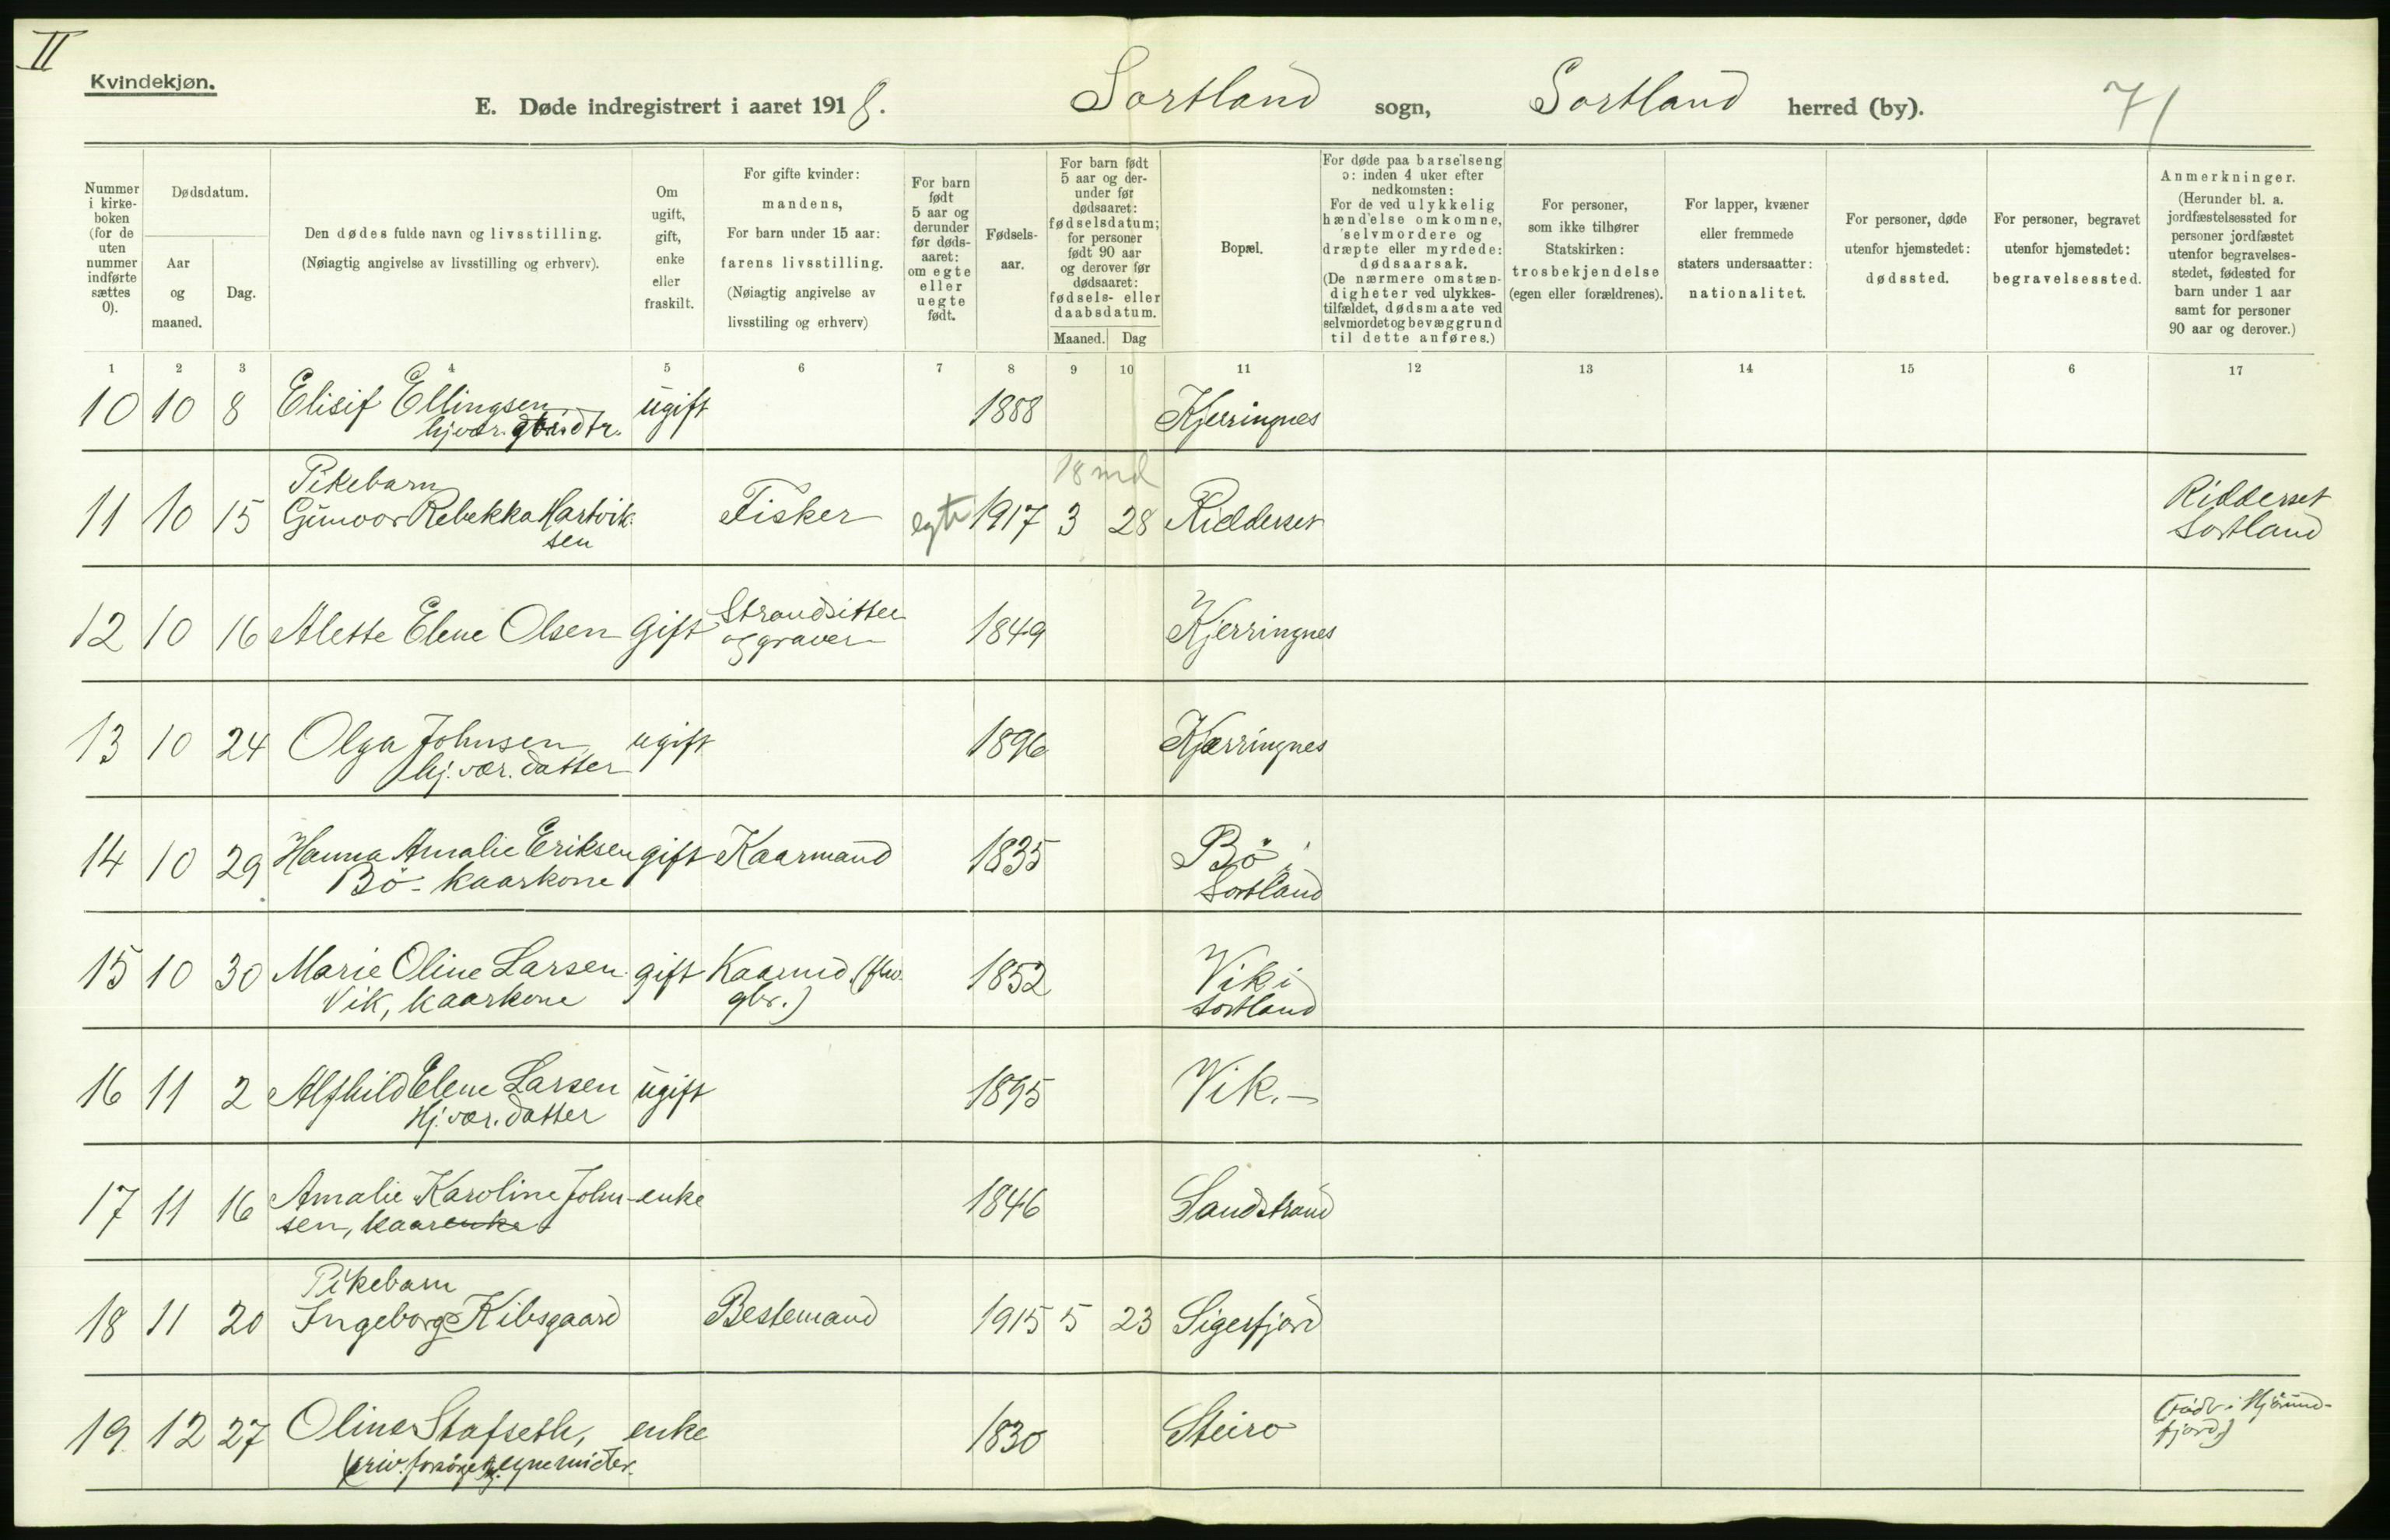 II
Kvindekjøn.
E. Døde indregistrert i aaret 1918. Sortland sogn, Sortland herred (by). 71
Nummer i kirke-boken (for de uten nummer indførte sættes 0).
Dødsdatum.
Aar og maaned.
Dag.
Den dødes fulde navn og livsstilling.
(Nøiagtig angivelse av livsstilling og erhverv).
Om ugift, gift, enke eller fraskilt.
For gifte kvinder: mandens,
For barn under 15 aar: farens livsstilling.
(Nøiagtig angivelse av livsstiling og erhverv)
For barn født 5 aar og derunder før døds-aaret: om egte eller uegte født.
Fødsels-aar.
For barn født 5 aar og der-under før dødsaaret: fødselsdatum; for personer født 90 aar og derover før dødsaaret: fødsels- eller daabsdatum.
Maaned. Dag
Bopæl.
For døde paa barselseng ɔ: inden 4 uker efter nedkomsten:
For de ved ulykkelig hændelse omkomne, selvmordere og dræpte eller myrdede: dødsaarsak.
(De nærmere omstæn-digheter ved ulykkes-tilfældet, dødsmaate ved selvmordet og bevæggrund til dette anføres.)
For personer, som ikke tilhører Statskirken: trosbekjendelse (egen eller forældrenes).
For lapper, kvæner eller fremmede staters undersaatter: nationalitet.
For personer, døde utenfor hjemstedet: dødssted.
For personer, begravet utenfor hjemstedet: begravelsessted.
Anmerkninger.
(Herunder bl. a. jordfæstelsessted for personer jordfæstet utenfor begravelses-stedet, fødested for barn under 1 aar samt for personer 90 aar og derover.)
1 2 3 4 5 6 7 8 9 10 11 12 13 14 15 6 17
10 10 8 Elisif Ellingsen ugift 1888 Kjerringnes
hjvær.
18 md
Pikebarn Ridderset
11 10 15 Gunvor Rebekka Hartvik- Fisker egte 1917 3 28 Ridderset Sortland
sen
12 10 16 Alette Elene Olsen gift Strandsitter 1849 Kjerringnes
og graver
13 10 24 Olga Johnsen ugift 1896 Kjærringnes
hj.vær. datter
14 10 29 Hanna Amalie Eriksen gift Kaarmand 1835 Bö i
Bö - kaarkone Sortland
15 10 30 Marie Oline Larsen gift Kaarmd. (fhv. 1852 Vik i
Vik, kaarkone gbr.) Sortland
16 11 2 Alfhild Elene Larsen ugift 1895 Vik. -
Hj.vær. datter
17 11 16 Amalie Karoline John- enke 1846 Sandstrand
sen, kaarenke
Pikebarn
18 11 20 Ingeborg Kibsgaard Bestemand 1915 5 23 Sigerfjord
19 12 27 Oline Stafseth, enke 1830 Steiro (född i Hjörund-
fjord)
priv. forsörget egne midler.